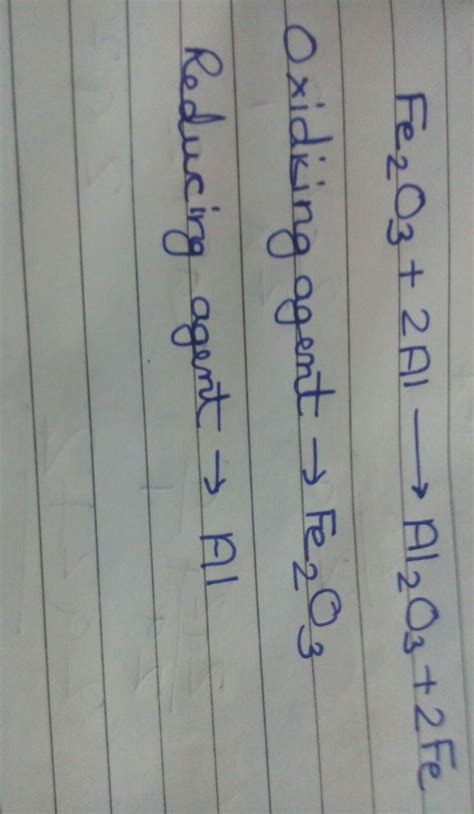 Fe₂O₃ + 2Al → Al₂O₃ + 2Fe
Oxidiking agent → Fe₂O₃
Reducing agent → Al